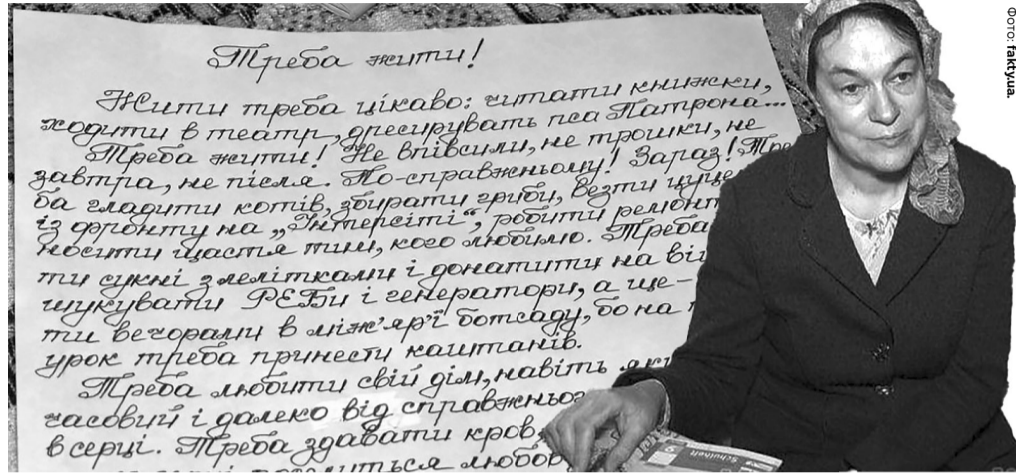 Треба жити!
Жити треба цікаво: читати книжки,
ходити в театр, дресирувать пса Патрона...
Треба жити! Не впівсили, не трошки, не
завтра, не після. По-справжньому! Зараз! Тре
ба гладити котів, збирати гриби, везти цуце
із фронту на „Інтерсіті“, робити ремонт
носити щастя тим, кого любимо. Треба
ти сукні з лелітками і донатити на вій
шукувати РЕБи і генератори, а ще-
ти вечорами в між'яр'ї ботсаду, бо на
урок треба принести каштанів.
Треба любити свій дім, навіть як
часовий і далеко від справжньог
в серці. Треба здавати кров,
любов
Schulheft
Фото: fakty.ua.